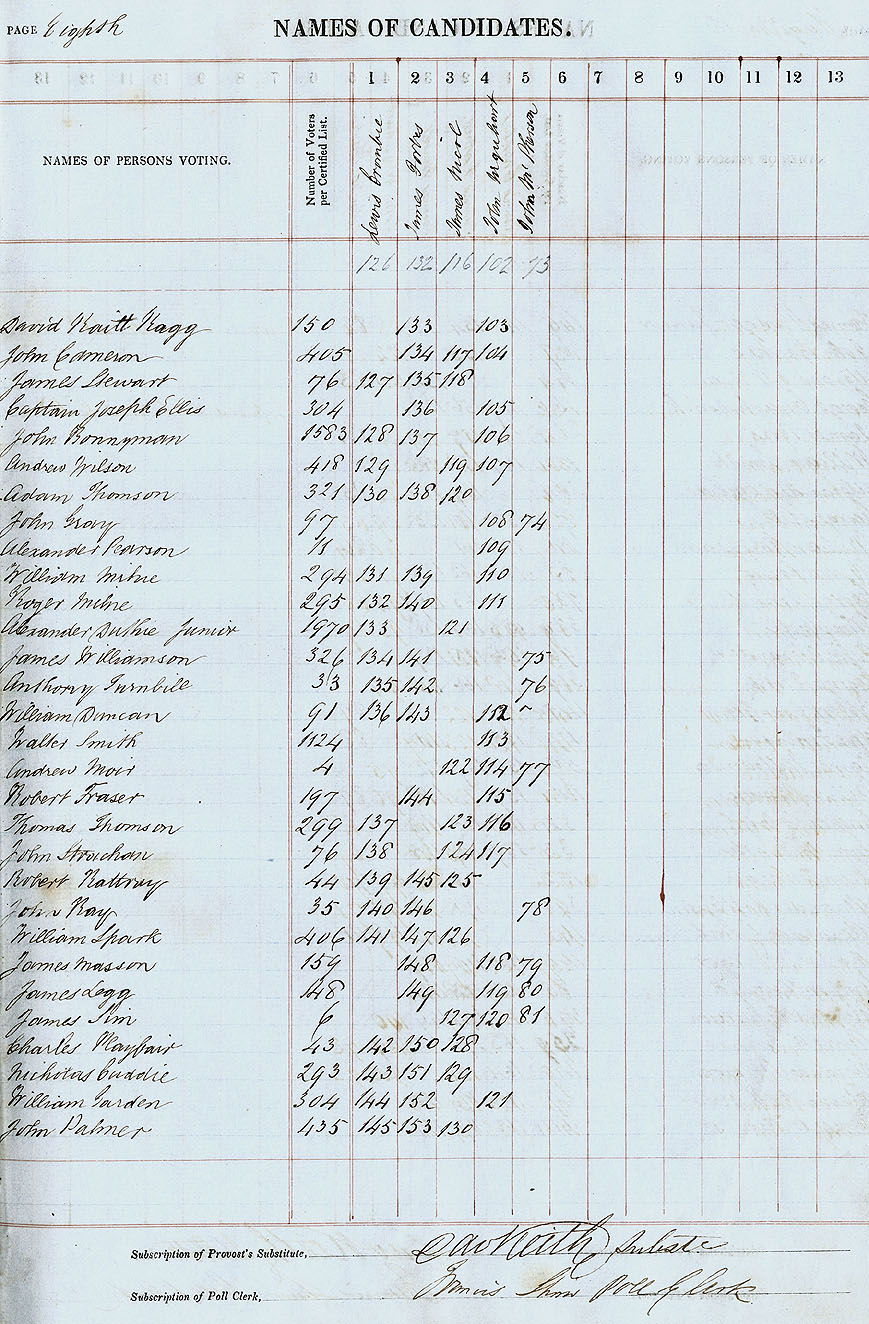 PAGE Eighth
NAMES OF CANDIDATES.
1 2 3 4 5 6 7 8 9 10 11 12 13
NAMES OF PERSONS VOTING.
Number of Voters per Certified List.
Lewis Crombie
James Forbes
James Nicol
John Urquhart
John McPherson
126 132 116 102 73
David Kagg 150 133 103
John Cameron 405 134 117 104
James Stewart 76 127 135 118
Captain Joseph Ellis 304 136 105
John Bonnyman 1583 128 137 106
Andrew Wilson 418 129 119 107
Adam Thomson 321 130 138 120
John Gray 97 108 74
Alexander Pearson 11 109
William Milne 294 131 139 110
Roger Milne 295 132 140 111
Alexander Duthie Junior 1970 133 121
James Williamson 326 134 141 75
Anthony Turnbill 33 135 142 76
William Duncan 91 136 143 112
Walter Smith 1124 113
Andrew Moir 4 122 114 77
Robert Fraser 197 144 115
Thomas Thomson 299 137 123 116
John Strachan 76 138 124 117
Robert Rattray 44 139 145 125
John Ray 35 140 146 78
William Spark 406 141 147 126
James Masson 159 148 118 79
James Legg 148 149 119 80
James Sim 6 127 120 81
Charles Playfair 43 142 150 128
Nicholas Cuddie 293 143 151 129
William Garden 304 144 152 121
John Palmer 435 145 153 130
Subscription of Provost's Substitute, Dav Keith Substit
Subscription of Poll Clerk, Francis Poll Clerk